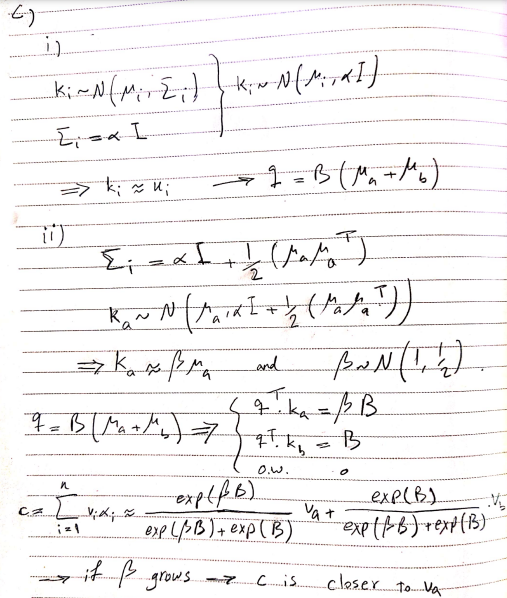 c)
i)
kᵢ ~ N(μᵢ, Σᵢ) } kᵢ ~ N(μᵢ, αI)
Σᵢ = α I
⟹ kᵢ ≈ uᵢ → q = B(μₐ + μ_b)
ii)
Σᵢ = αI + 1/2 (μₐμₐᵀ)
kₐ ~ N(μₐ, αI + 1/2 (μₐμₐᵀ))
⟹ kₐ ≈ βμₐ and β ~ N(1, 1/2).
q = B(μₐ + μ_b) ⟹ { qᵀ.kₐ = βB
qᵀ.k_b = B
o.w. 0
c = Σᵢ₌₁ⁿ vᵢαᵢ ≈ exp(βB) / (exp(βB) + exp(B)) vₐ + exp(B) / (exp(βB) + exp(B)) .v_b
→ if β grows → c is closer to vₐ